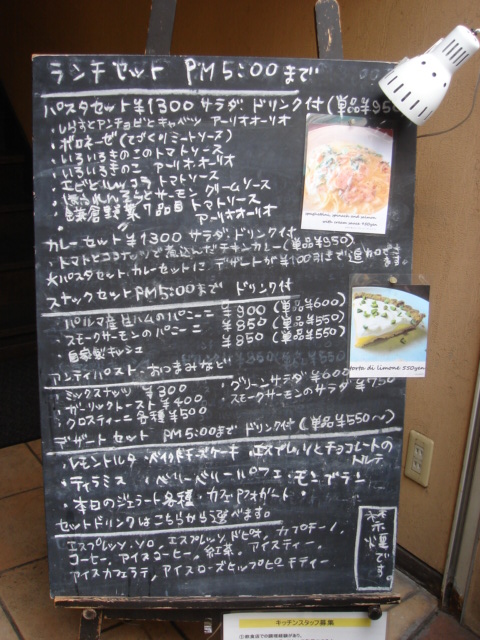 ランチセット PM5:00まで
パスタセット¥1300 サラダ・ドリンク付(単品¥950)
・しらすとアンチョビとキャベツ アーリオオーリオ
・ボロネーゼ(てづくりミートソース)
・いろいろきのこのトマトソース
・いろいろきのこ アーリオオーリオ
・エビとルッコラ トマトソース
・ほうれん草とサーモン クリームソース
・鎌倉野菜7品目 トマトソース
・〃 アーリオオーリオ
カレーセット¥1300 サラダ・ドリンク付
・トマトとココナッツで煮込んだチキンカレー(単品¥950)
★パスタセット、カレーセットに デザートが¥100引きで追加
スナックセットPM5:00まで ドリンク付
・パルマ産生ハムのパニーニ ¥900(単品¥600)
・スモークサーモンのパニーニ ¥850(単品¥550)
・自家製キッシュ ¥850(単品¥550)
アンティパスト・おつまみなど
・ミックスナッツ ¥300
・グリーンサラダ ¥600
・ガーリックトースト ¥400
・スモークサーモンのサラダ ¥750
・クロスティーニ 各種¥500
デザートセット PM5:00まで ドリンク付(単品¥550〜)
・レモントルタ・ベイクドチーズケーキ・エスプレッソとチョコレートのトルテ
・ティラミス ・ベリーベリーパフェ・モンブラン
・本日のジェラート各種・カフェアフォガート・
セットドリンクはこちらから選べます。
エスプレッソ・ソロ, エスプレッソ・ドピオ, カプチーノ,
コーヒー, アイスコーヒー, 紅茶, アイスティー,
アイスカフェラテ, アイスローズヒップピーチティー
禁煙です。
spaghettini, spinach and salmon
with cream sauce 950yen
torta di limone 550yen
キッチンスタッフ募集